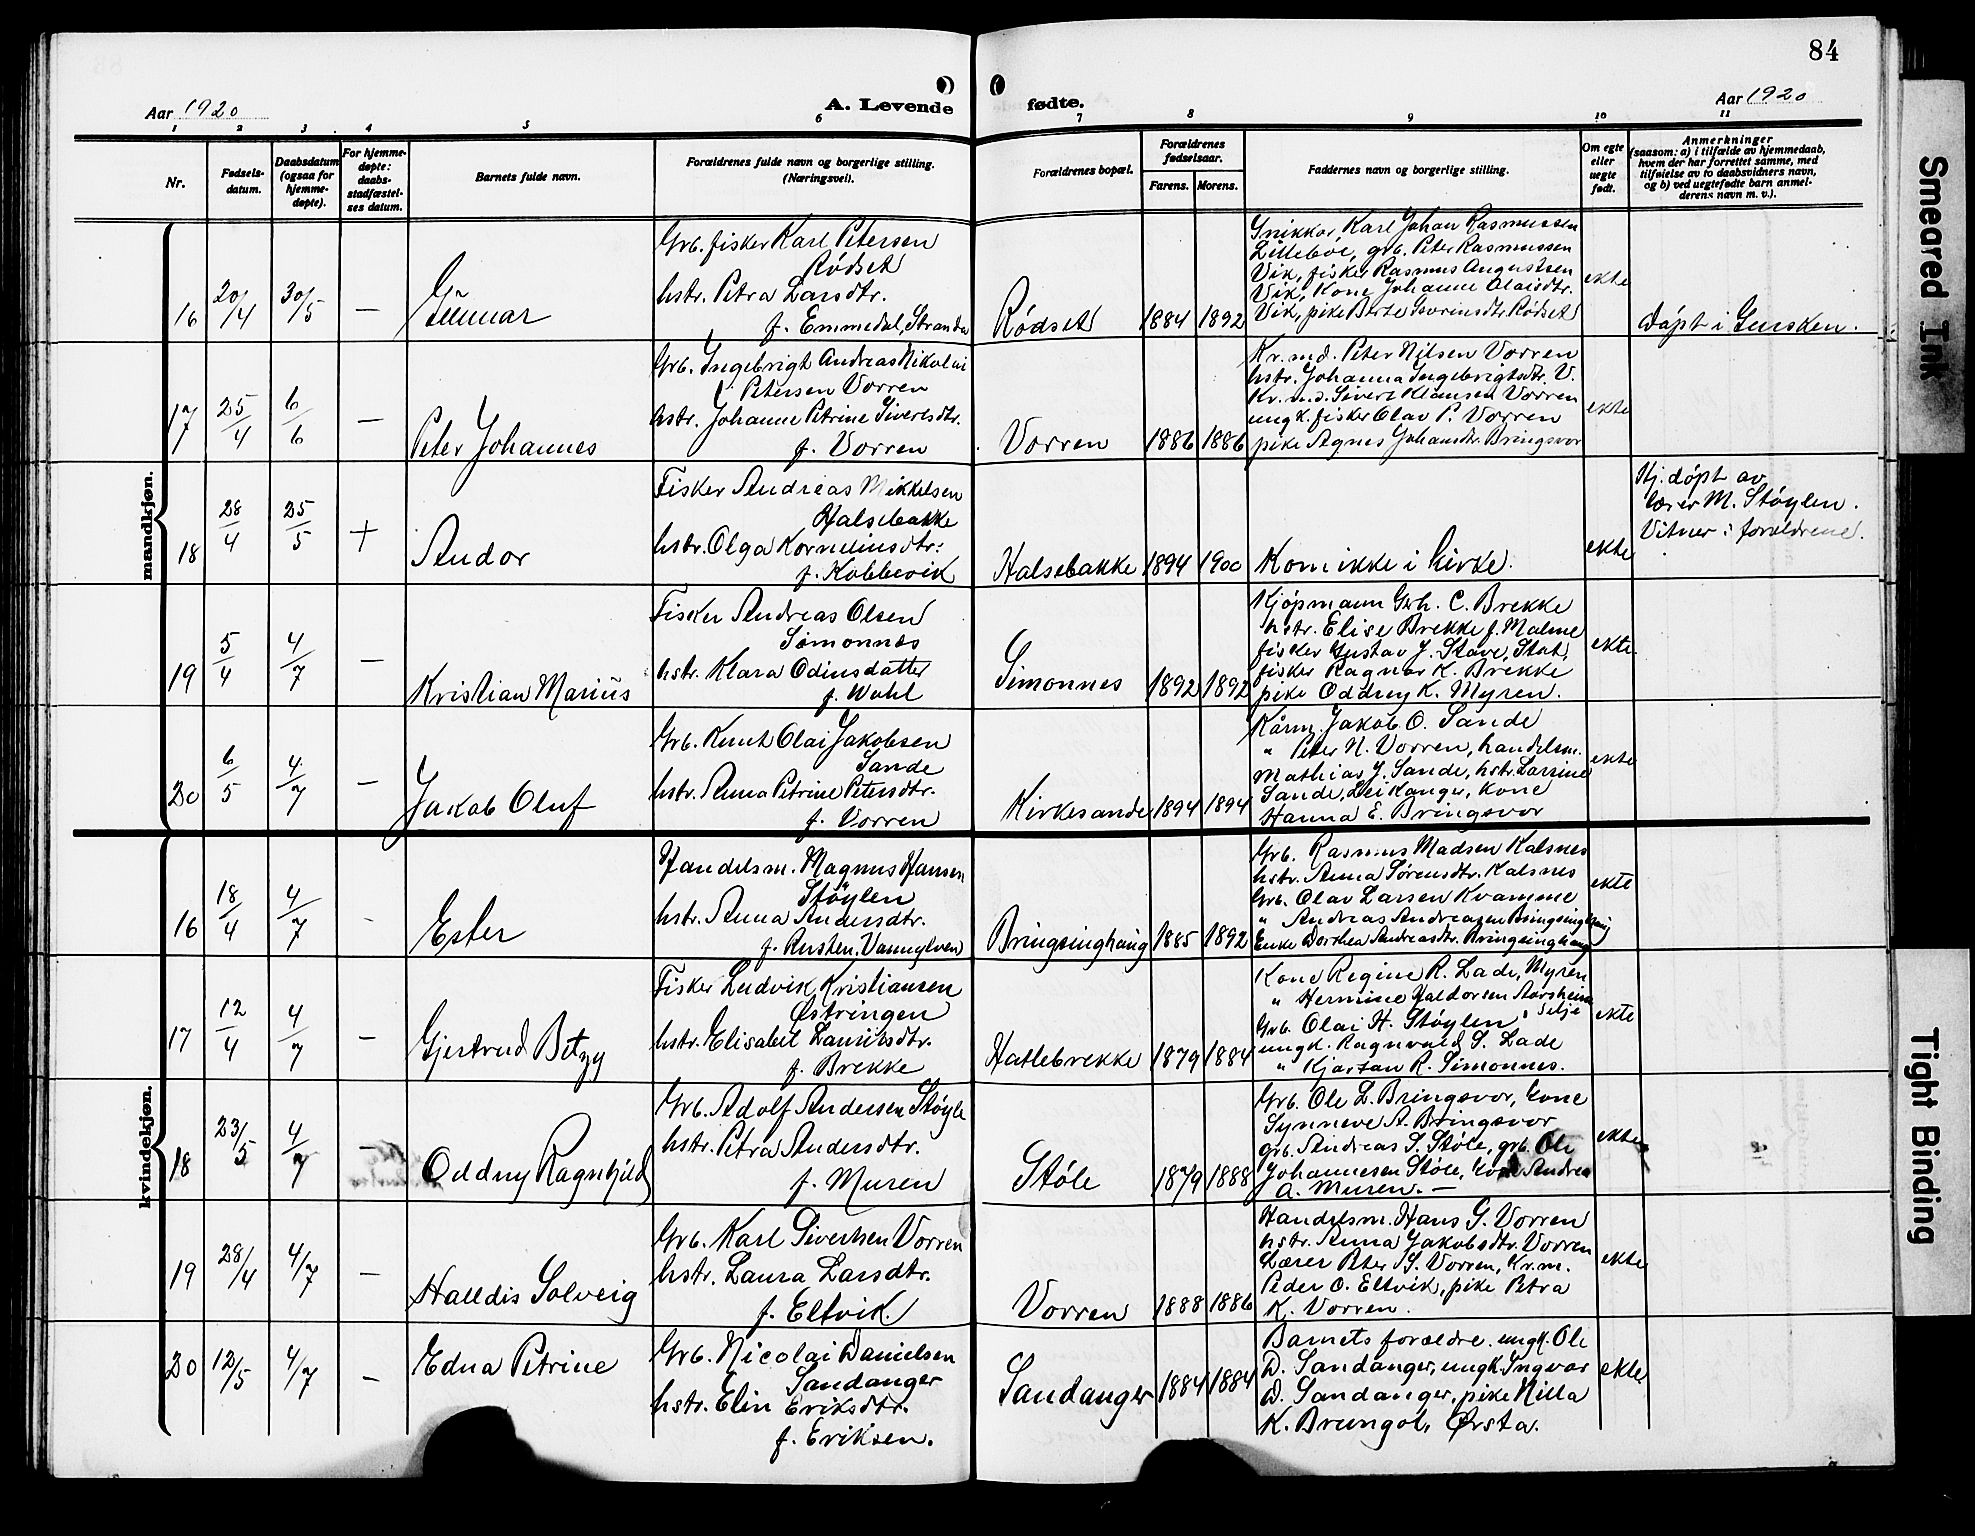 84
Aar 1920
A. Levende
fødte.
Aar 1920
1 2 3 4 5 6 7 8 9 10 11
Nr.
Fødsels-
datum.
Daabsdatum
(ogsaa for
hjemme-
døpte).
For hjemme-
døpte:
daabs-
stadfæstel-
ses datum.
Barnets fulde navn.
Forældrenes fulde navn og borgerlige stilling.
(Næringsvei).
Forældrenes bopæl.
Forældrenes
fødselsaar.
Farens. Morens.
Faddernes navn og borgerlige stilling.
Om egte
eller
uegte
født.
Anmerkninger
(saasom: a) i tilfælde av hjemmedaab,
hvem der har forrettet samme, med
tilføielse av to daabsvidners navn,
og b) ved uegtefødte barn anmel-
derens navn m. v.).
mandkjøn.
16 20/4 30/5 — Gunnar
Grb. fisker Karl Petersen
Rödset
hstr. Petra Larsdtr.
f. Emmedal, Stranda
Rödset 1884 1892
Snikkar Karl Johan Rasmussen
Lillebøe, grb. Peter Rasmussen
Vik, fisker Rasmus Augustsen
Vik, Kone Johanne Olaisdtr.
Vik, pike Berte Severinsdtr Rödset
ekte
döpt i Gursken.
17 25/4 6/6 — Peter Johannes
Grb. Ingebrigt Andreas Nikolai
Petersen Vorren
hstr. Johanne Petrine Sivertsdtr.
f. Vorren
Vorren 1886 1886
Kr. md. Peter Nilsen Vorren
hstr. Johanna Ingebrigtsdtr. V.
Kr. md. Sivert Klausen Vorren
ungk. fisker Olav P. Vorren
pike Agnes Johansdtr. Bringsvor
ekte
18 28/4 25/5 + Andor
Fisker Andreas Mikkelsen
Halsebakke
hstr. Olga Korneliusdtr:
f. Kobbevik
Halsebakke 1894 1900
Kom ikke i kirke.
ekte
Hj. döpt av
lærer M. Støylen.
Vitner: forældrene.
19 5/4 4/7 — Kristian Marius
Fisker Andreas Olsen
Simonnes
hstr. Klara Odinsdatter
f. Wahl
Simonnes 1892 1892
Kjöpmann Grh. C. Brekke
hstr. Elise Brekke f. Malme
fisker Gustav J. Stave, Stat,
fisker Ragnar K. Brekke
pike Oddny K. Myren.
ekte
20 6/5 4/7 — Jakob Oluf
Grb. Knut Olai Jakobsen
Sande
hstr. Anna Petrine Petersdtr.
f. Vorren
Kirkesande 1894 1894
Kårm. Jakob O. Sande
" Peter N. Vorren, handelsm.
Mathias J. Sande, hstr. Larsine
Sande, Leikanger, kone
Hanna E. Bringsvor
ekte
kvindekjøn.
16 18/4 4/7 - Ester
Handelsm. Magnus Hansen
Støylen
hstr. Anna Andersdtr.
f. Rusten, Vannylven
Bringsinghaug 1885 1892
Grb. Rasmus Madsen Kalsnes
hstr. Anna Sørensdtr. Kalsnes
Grb. Olav Larsen Kvamme
" Andreas Andreasen Bringsinghaug
Enke Dorthea Andreasdtr. Bringsinghaug
ekte
17 12/4 4/7 — Gjertrud Betzy
Fisker Ludvik Kristiansen
Østringen
hstr. Elisabet Lauritsdtr.
f. Brekke
Hatlebrekke 1879 1884
Kone Regine R. Lade, Myren
" Hermine Haldorsen Aarsheim
Selje
Grb. Olai H. Støylen,
ungk. Ragnvald S. Lade
" Kjartan R. Simonnes.
ekte
18 23/5 4/7 — Oddny Ragnhild
Grb. Adolf Andersen Støyle
hstr. Petra Andersdtr.
f. Muren
Støle 1879 1888
Grb. Ole L. Bringsvor, kone
Synneve A. Bringsvor
grb. Andreas S. Støle, grb. Ole
Johannesen Støle, kone Andrea
A. Muren. —
ekte
19 28/4 4/7 — Halldis Solveig
Grb. Karl Sivertsen Vorren
hstr. Laura Larsdtr.
f. Eltvik.
Vorren 1888 1886
Handelsm. Hans G. Vorren
hstr. Anna Jakobsdtr. Vorren
Lærer Peter S. Vorren, Kr.m.
Peder O. Eltvik, pike Petra
K. Vorren.
ekte
20 12/5 4/7 — Edna Petrine
Grb. Nicolai Danielsen
Sandanger
hstr. Elin Eriksdtr.
f. Eriksen.
Sandanger 1884 1884
Barnets forældre. ungk. Ole
D. Sandanger, ungk. Ingvar
D. Sandanger, pike Nilla
K. Brungot, Ørsta.
ekte
Smeared Ink
Tight Binding